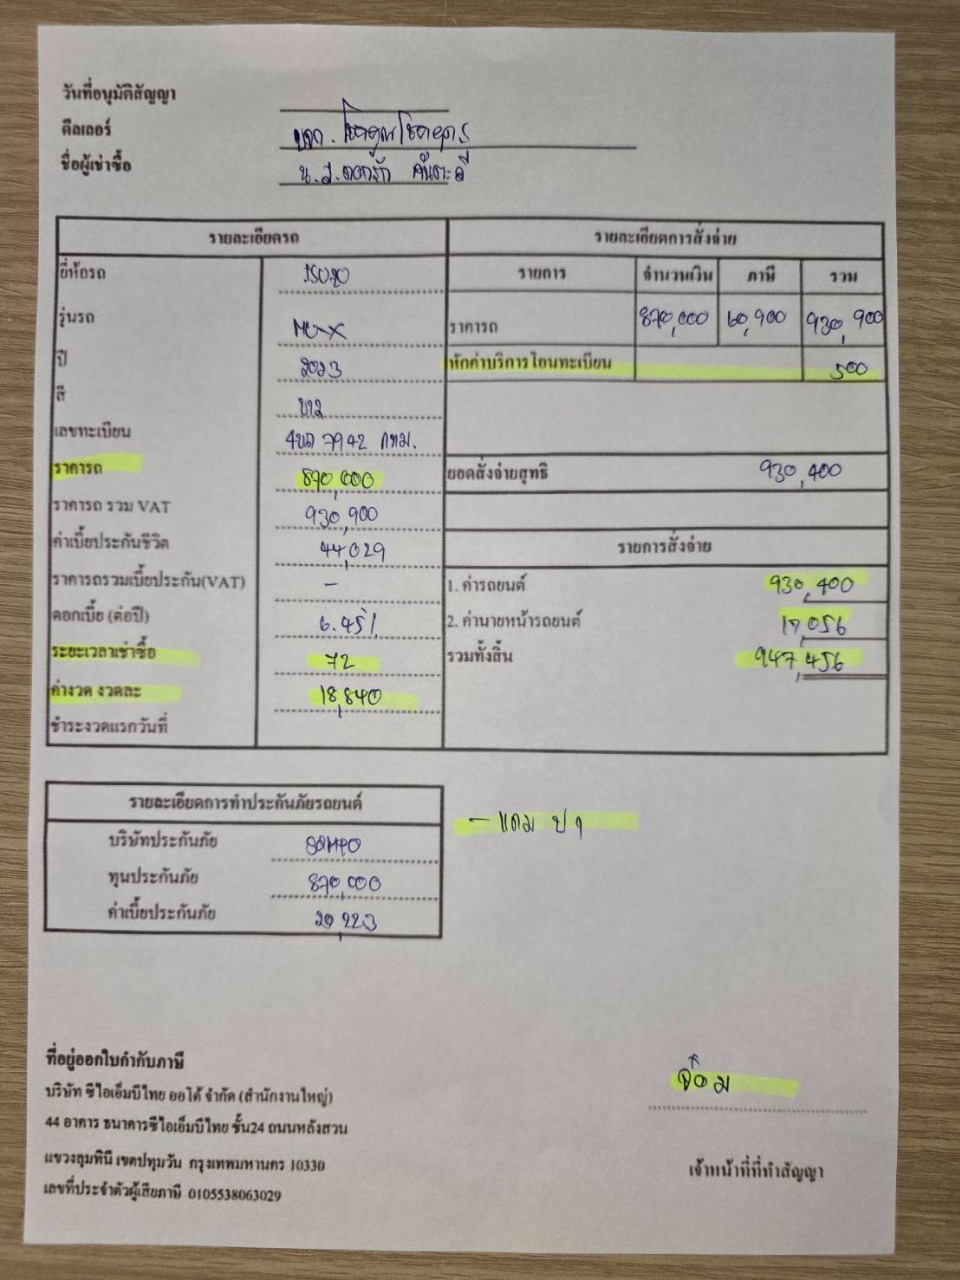 วันที่อนุมัติสัญญา
ดีลเลอร์ บจก.
ชื่อผู้เช่าซื้อ น.ส.ดอกรัก
รายละเอียดรถ
ยี่ห้อรถ ISUZU
รุ่นรถ MU-X
ปี 2023
สี ขาว
เลขทะเบียน 7942 กทม.
ราคารถ 870,000
ราคารถ รวม VAT 930,900
ค่าเบี้ยประกันชีวิต 44,029
ราคารถรวมเบี้ยประกัน(VAT) -
ดอกเบี้ย (ต่อปี) 6.45%
ระยะเวลาเช่าซื้อ 72
ค่างวด งวดละ 18,840
ชำระงวดแรกวันที่
รายละเอียดการสั่งจ่าย
รายการ จำนวนเงิน ภาษี รวม
ราคารถ 870,000 60,900 930,900
หักค่าบริการโอนทะเบียน 500
ยอดสั่งจ่ายสุทธิ 930,400
รายการสั่งจ่าย
1. ค่ารถยนต์ 930,400
2. ค่านายหน้ารถยนต์ 17,056
รวมทั้งสิ้น 947,456
รายละเอียดการทำประกันภัยรถยนต์
บริษัทประกันภัย SOMPO
ทุนประกันภัย 870,000
ค่าเบี้ยประกันภัย 20,223
- แถม ป 1
ที่อยู่ออกใบกำกับภาษี
บริษัท ซีไอเอ็มบีไทย ออโต้ จำกัด (สำนักงานใหญ่)
44 อาคาร ธนาคารซีไอเอ็มบีไทย ชั้น24 ถนนหลังสวน
แขวงลุมพินี เขตปทุมวัน กรุงเทพมหานคร 10330
เลขที่ประจำตัวผู้เสียภาษี 0105538063029
เจ้าหน้าที่ที่ทำสัญญา